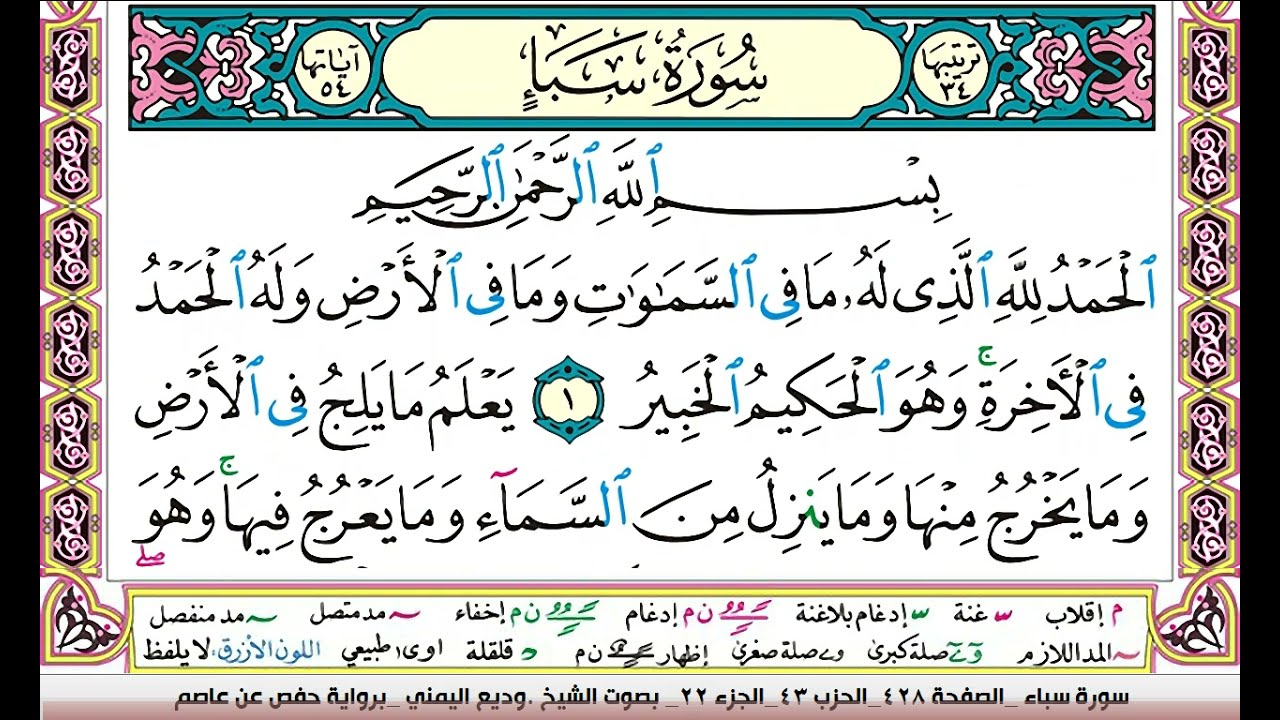 ترتيبها ٣٤
سُورَةُ سَبَإٍ
آياتها ٥٤
بِسْمِ ٱللَّهِ ٱلرَّحْمَٰنِ ٱلرَّحِيمِ
ٱلْحَمْدُ لِلَّهِ ٱلَّذِى لَهُۥ مَا فِى ٱلسَّمَٰوَٰتِ وَمَا فِى ٱلْأَرْضِ وَلَهُ ٱلْحَمْدُ
فِى ٱلْأَخِرَةِ ۚ وَهُوَ ٱلْحَكِيمُ ٱلْخَبِيرُ ١ يَعْلَمُ مَا يَلِجُ فِى ٱلْأَرْضِ
وَمَا يَخْرُجُ مِنْهَا وَمَا يَنزِلُ مِنَ ٱلسَّمَآءِ وَمَا يَعْرُجُ فِيهَا ۚ وَهُوَ
صلے
م إقلاب س غنة س إدغام بلاغنة ن م إدغام ن م إخفاء ~ مد متصل ~ مد منفصل
~ المد اللازم و ے صلة كبرى و ے صلة صغرى إظهار ن م د قلقلة ا و ى طبيعي اللون الأزرق لا يلفظ
سورة سباء _الصفحة ٤٢٨_ الحزب ٤٣_ الجزء ٢٢_ بصوت الشيخ .وديع اليمني _برواية حفص عن عاصم